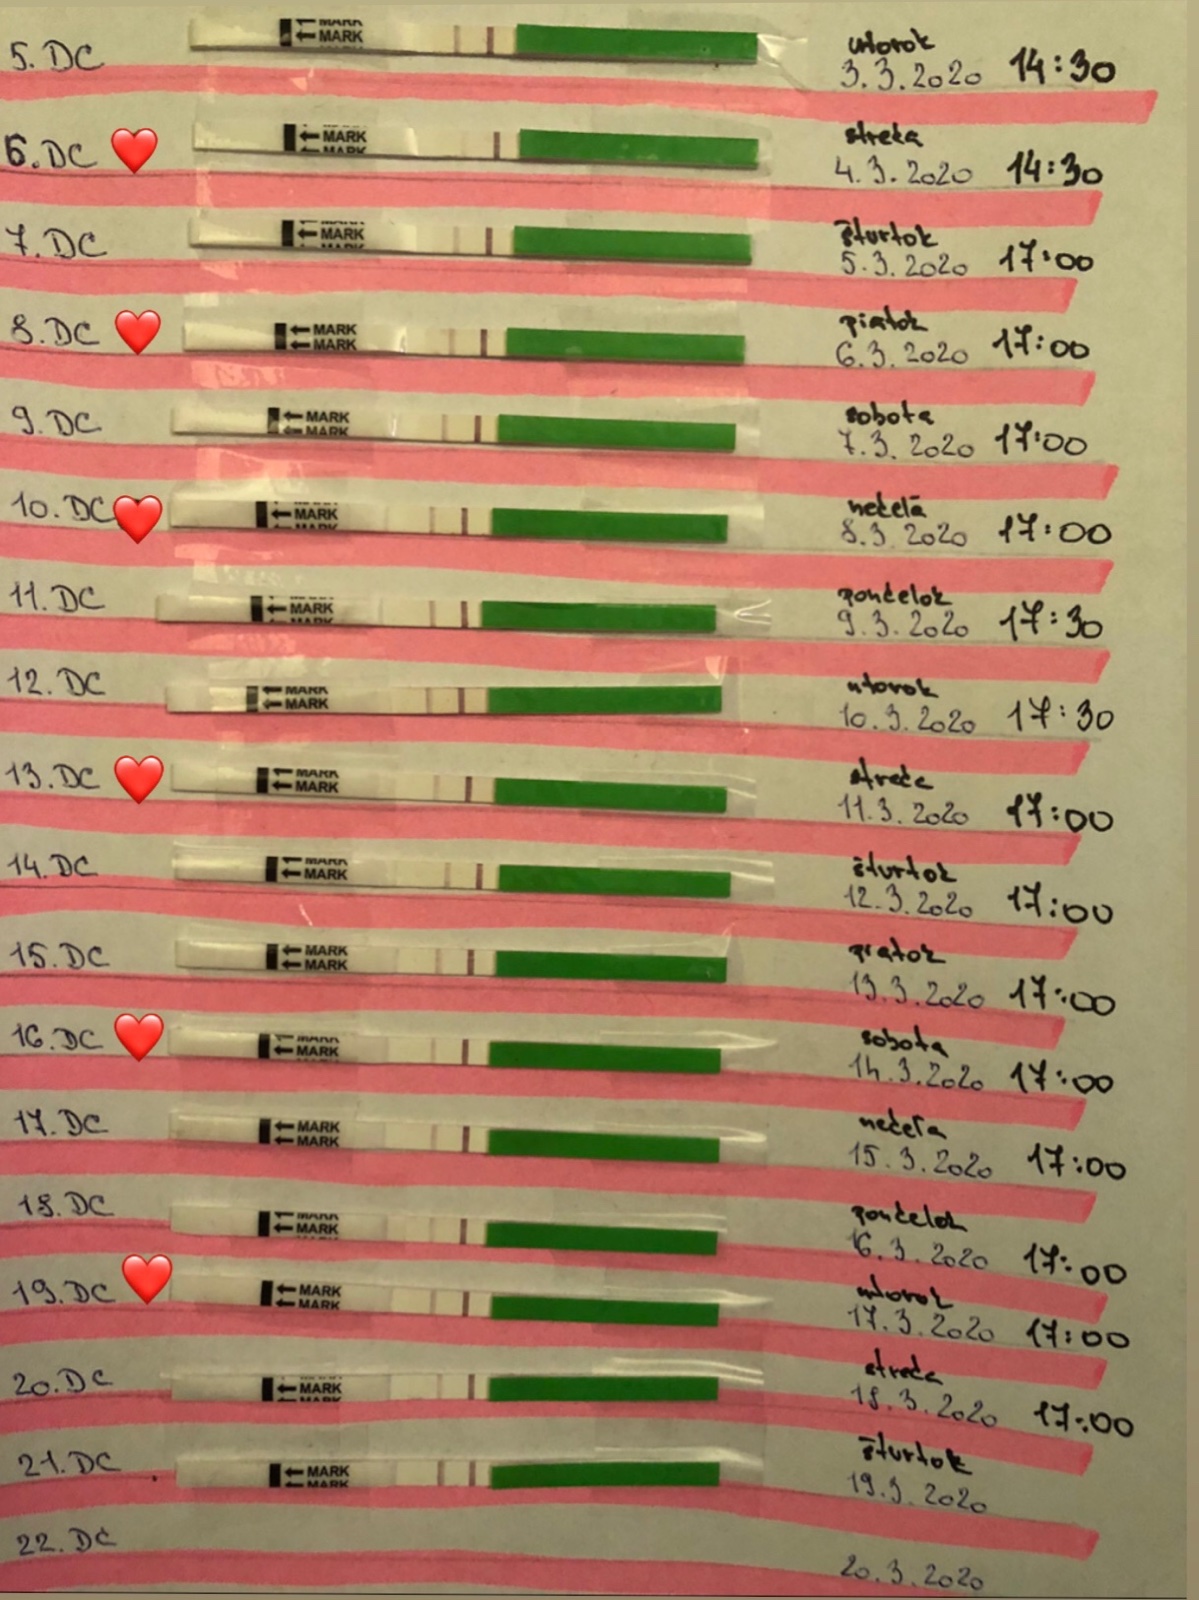 5. DC MARK MARK utorok
3.3.2020 14:30
6. DC MARK MARK streda
4.3.2020 14:30
7. DC MARK štvrtok
5.3.2020 17:00
8. DC MARK MARK piatok
6.3.2020 17:00
9. DC MARK MARK sobota
7.3.2020 17:00
10. DC MARK nedeľa
8.3.2020 17:00
11. DC MARK MARK pondelok
9.3.2020 17:30
12. DC MARK MARK utorok
10.3.2020 17:30
13. DC MARK MARK streda
11.3.2020 17:00
14. DC MARK MARK štvrtok
12.3.2020 17:00
15. DC MARK MARK piatok
13.3.2020 17:00
16. DC MARK MARK sobota
14.3.2020 17:00
17. DC MARK MARK nedeľa
15.3.2020 17:00
18. DC MARK MARK pondelok
16.3.2020 17:00
19. DC MARK MARK utorok
17.3.2020 17:00
20. DC MARK MARK streda
18.3.2020 17:00
21. DC MARK MARK štvrtok
19.3.2020
22. DC
20.3.2020